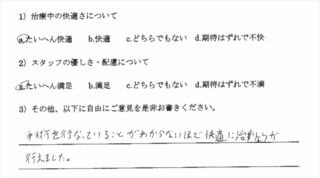 1）治療中の快適さについて
a.たいへん快適 b.快適 c.どちらでもない d.期待はずれで不快
2）スタッフの優しさ・配慮について
a.たいへん満足 b.満足 c.どちらでもない d.期待はずれで不満
3）その他、以下に自由にご意見を是非お書きください。
手術を行なっていることがわからないほど快適に治療が
行えました。